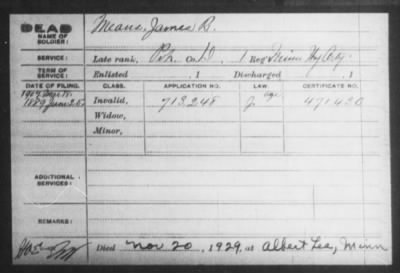 DEAD
NAME OF SOLDIER: Means, James B.
SERVICE: Late rank, Pvt. Co. D, 1 Reg't Minn Hy Arty.
TERM OF SERVICE: Enlisted , 1 Discharged , 1
DATE OF FILING. CLASS. APPLICATION NO. LAW. CERTIFICATE NO.
1907
1889 June 25 Invalid, 713248 471430
Widow,
Minor,
ADDITIONAL SERVICES:
REMARKS:
Died Nov 20, 1929, at Albert Lea, Minn